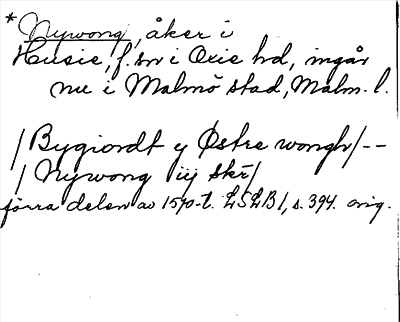 * Nywong, åker i
Husie, f. sn i Oxie hd, ingår
nu i Malmö stad, Malm. l.
/ Bygiordt y Østre wongh/--
/ Nywong iij skr̄/
förra delen av 1570-t. LSLB 1, s. 394. orig.